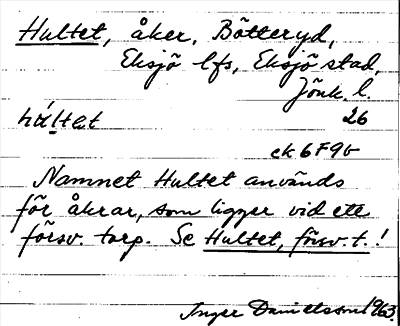 Hultet, åker, Bötteryd,
Eksjö lfs, Eksjö stad,
Jönk. l.
húltet 26
ek 6F9b
Namnet Hultet används
för åkrar, som ligger vid ett
försv. torp. Se Hultet, försv. t.!
Inger Danielsson 1963.